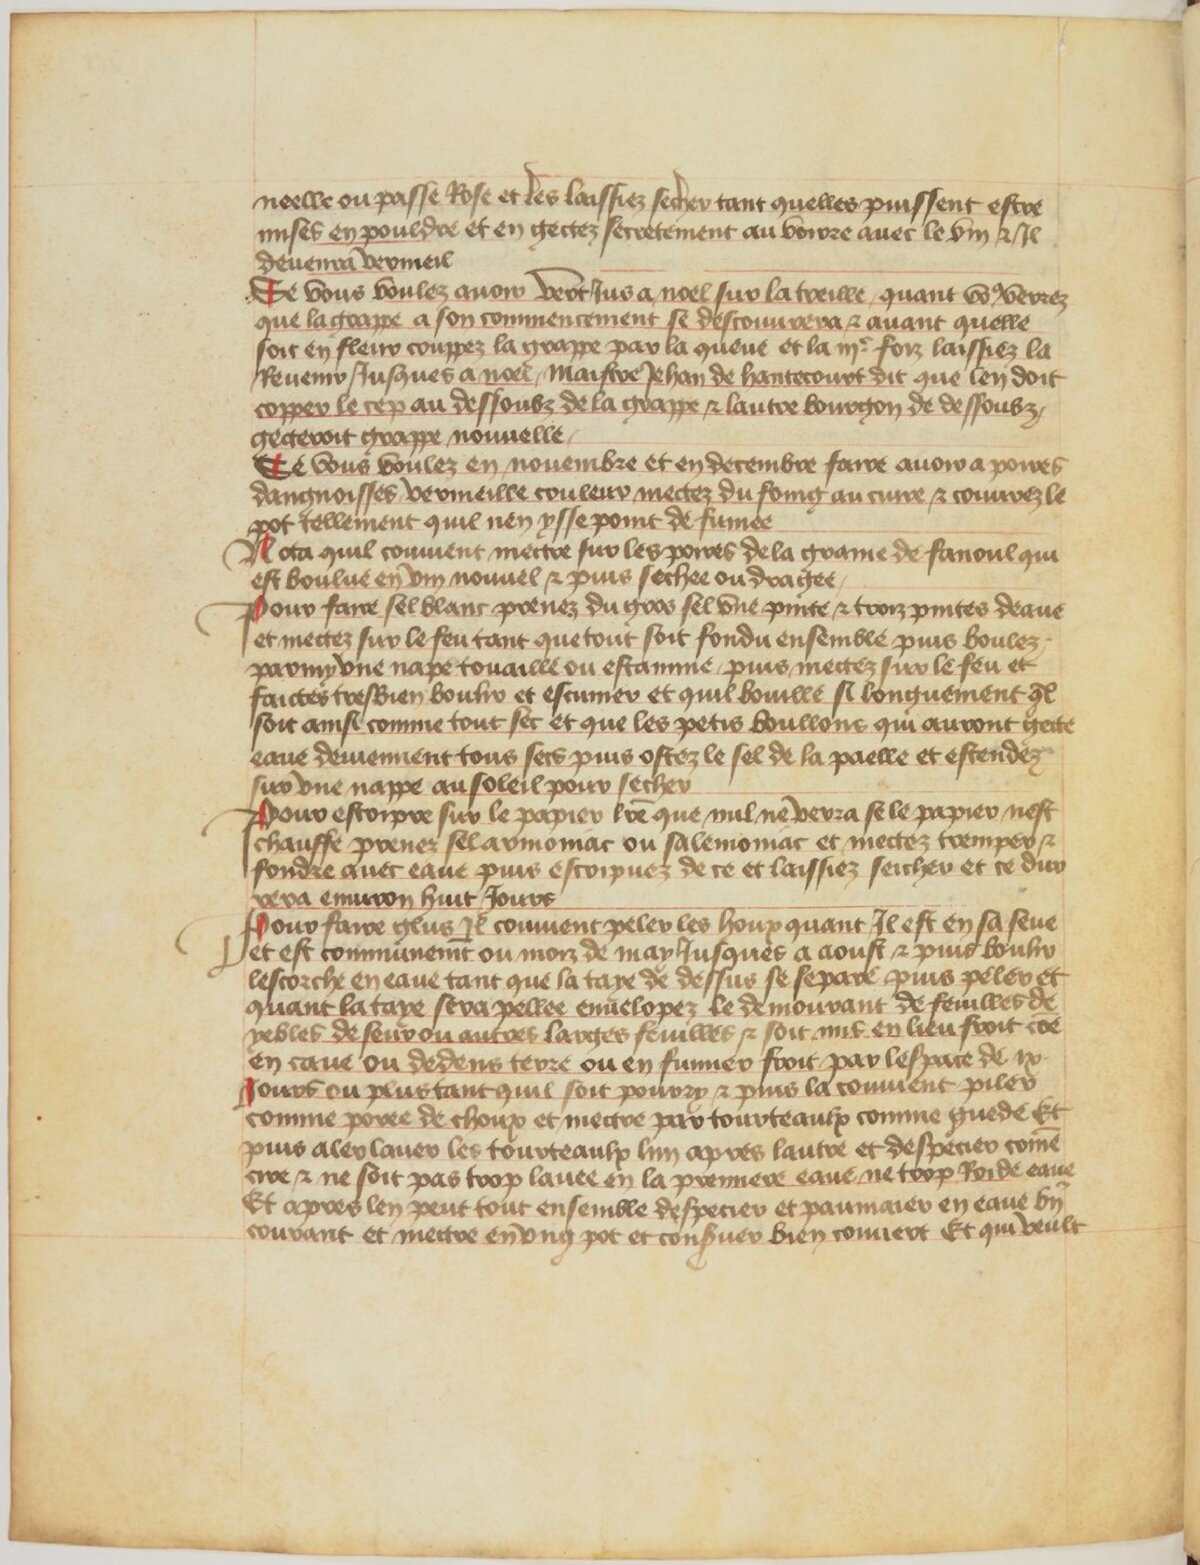 neelle ou passe Rose et les laissiez secher tant quelles puissent estre
mises en pouldre et en gectez secretement au voirre avec le vin ⁊ Il
devenra vermeil
Se vous voulez avoir vert Jus a noel sur la treille quant vo⁹ verrez
que la grappe a son commencement se descouvrera ⁊ avant quelle
soit en fleur couppez la grappe par la queue et la iijᵉ foiz laissiez la
Revenir Jusques a noel Maistre Jehan de hantecourt dit que len doit
copper le cep au dessoubz de la grappe ⁊ lautre bourgon de dessoubz
gecteroit grappe nouvelle
Se vous voulez en novembre et en decembre faire avoir a poires
dangnoisses vermeille couleur mectez du foing au cuire ⁊ couvrez le
pot tellement quil nen ysse point de fumee
Nota quil convient mectre sur les poires de la graine de fanoul qui
est boulue en vin nouvel ⁊ puis sechee ou dragee
Pour faire sel blanc prenez du gros sel une pinte ⁊ troiz pintes deaue
et mectez sur le feu tant que tout soit fondu ensemble puis boulez
parmy une nape touaille ou estamine puis mectez sur le feu et
faictes tresbien boulir et escumer et quil bouille si longuement ql̃
soit ainsi comme tout sec et que les petis boullons qui auront gecte
eaue deviennent tous secs puis ostez le sel de la paelle et estendez
sur une nappe au soleil pour secher
Pour escripre sur le papier lr̃e que nul ne verra se le papier nest
chauffe prenez sel armoniac ou salemoniac et mectez tremper ⁊
fondre avec eaue puis escripvez de ce et laissiez seicher et ce dur
rera environ huit Jours
Pour faire glus Il convient peler les houx quant Il est en sa seve
et est communemẽt ou moiz de may Jusques a aoust ⁊ puis boulir
lescorche en eaue tant que la taye de dessus se separe puis peler et
quant la taye sera pellee envelopez le demourant de feuilles de
yebles de seur ou autres larges feuilles ⁊ soit mis en lieu froit cõe
en cave ou dedens terre ou en fumier froit par lespace de ix
Jours ou plus tant quil soit pourry ⁊ puis la convient piler
comme poree de choux et mectre par tourteaulx comme guede Et
puis aler laver les tourteaulx lun apres lautre et despecier comẽ
cire ⁊ ne soit pas trop lavee en la premiere eaue ne trop Roide eaue
Et apres len peut tout ensemble despecier et paumoier en eaue bñ
courant et mectre en ung pot et conserver bien couvert Et qui veult